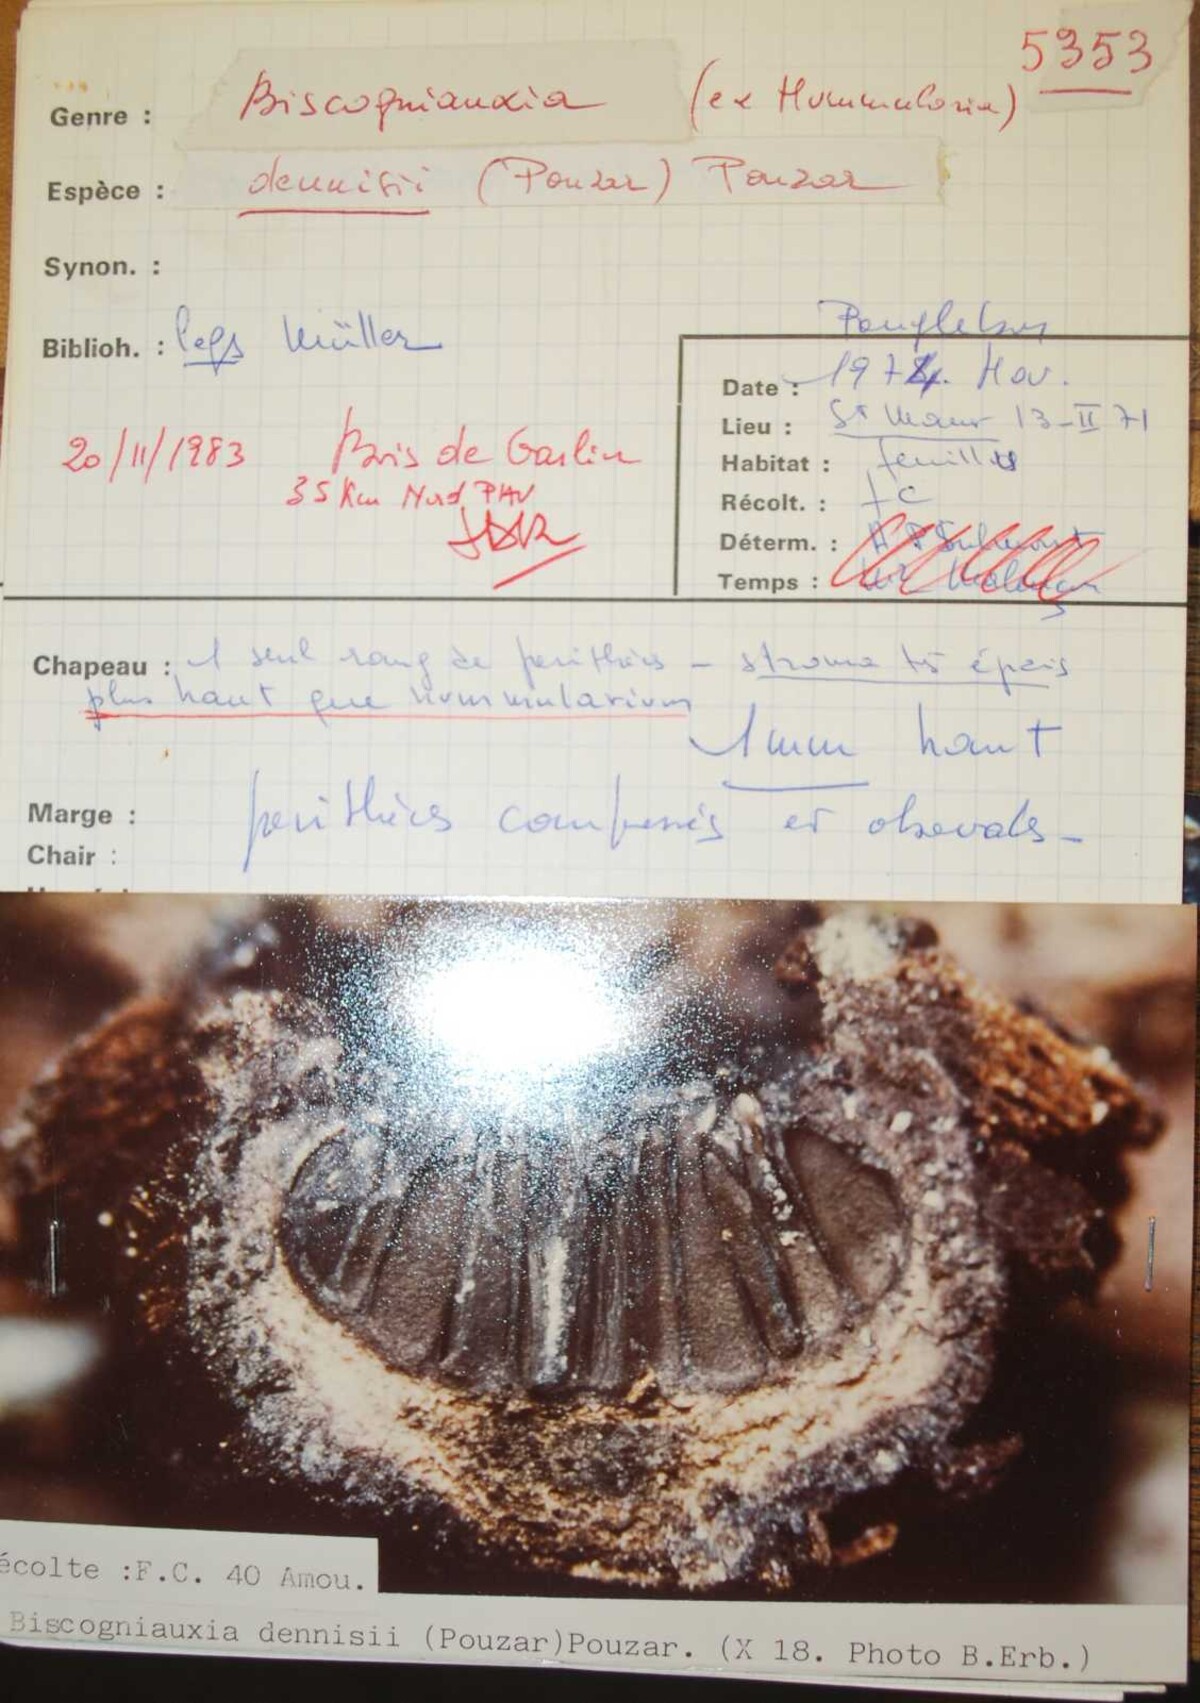 5353
Genre : Biscogniauxia (ex Nummularia)
Espèce : dennisii (Pouzar) Pouzar
Synon. :
Biblioh. : legs Müller
Date : 197 . Nov.
Lieu : St Maur 13-II 71
20/11/1983 Bois de Garlin
Habitat : feuillus
35 Km Nord PAU
Récolt. : FC
Déterm. :
Temps :
Chapeau : 1 seul rang de perithèces - stroma ts épais
plus haut que nummularium
1 mm haut
Marge : perithèces compressés et obovales -
Chair :
écolte :F.C. 40 Amou.
Biscogniauxia dennisii (Pouzar)Pouzar. (X 18. Photo B.Erb.)